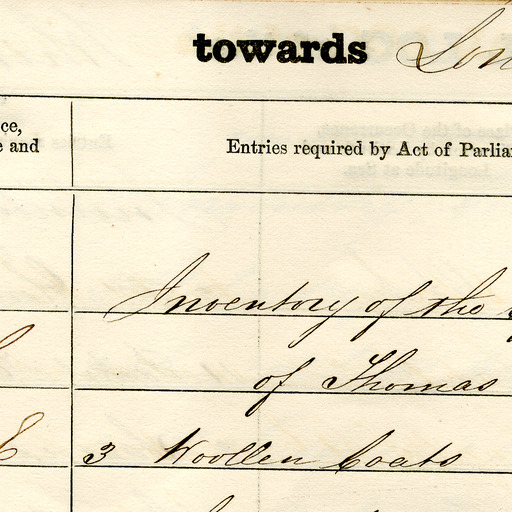 towards Lon
ce,
e and
Entries required by Act of Parlia
Inventory of the
of Thomas
3 Woollen Coats